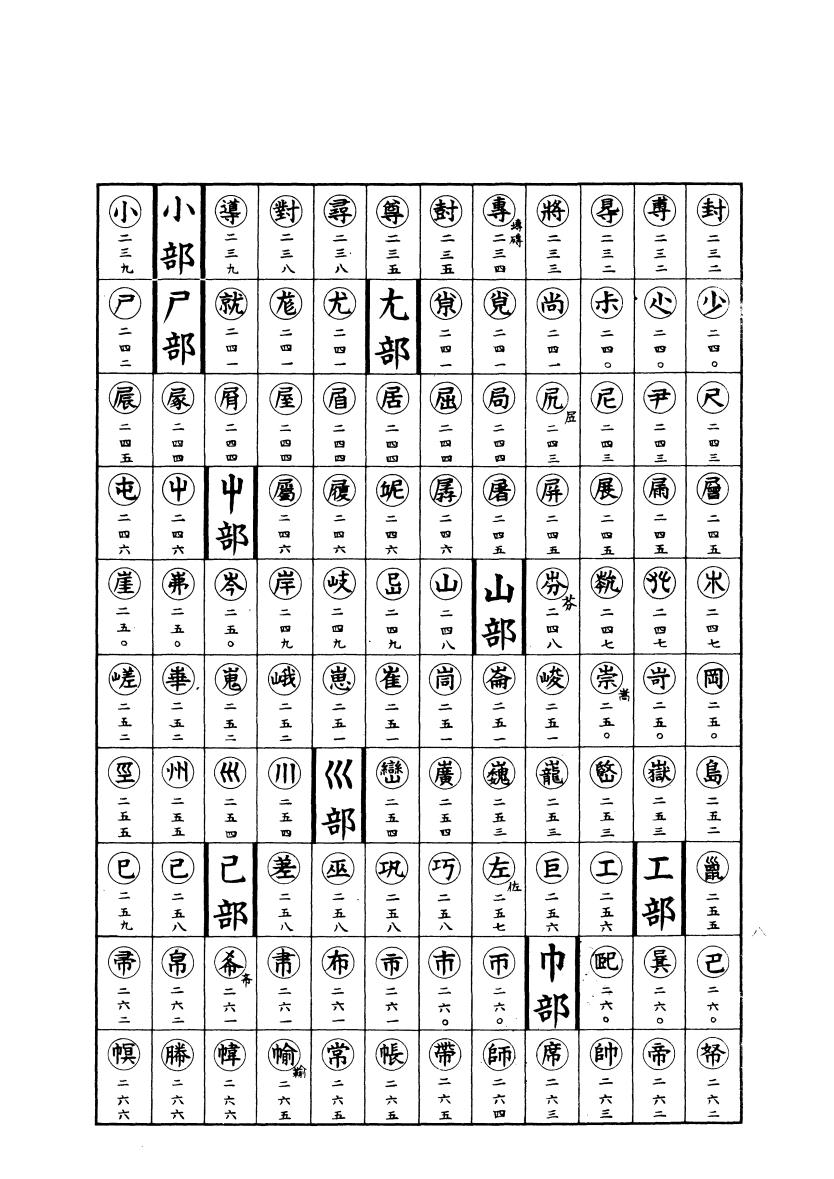 封 二三二 尃 二三二 㝵 二三二 將 二三三 專 塼 磚 二三四 尌 二三五 尊 二三五 尋 二三八 對 二三八 導 二三九 小部 小 二三九
少 二四〇 尐 二四〇 尗 二四〇 尚 二四一 㒸 二四一 尤部 尤 二四一 尨 二四一 就 二四一 尸部 尸 二四二
尺 二四三 尹 二四三 尼 二四三 尻 二四三 局 二四四 屈 二四四 居 二四四 眉 二四四 屋 二四四 屑 二四四 二四四 二四五
層 二四五 二四五 展 二四五 屏 二四五 屠 二四五 孱 二四六 二四六 履 二四六 屬 二四六 屮部 屮 二四六 屯 二四六
二四七 二四七 二四七 芬 二四八 山部 山 二四八 二四九 岐 二四九 岸 二四九 岑 二五〇 二五〇 崖 二五〇
岡 二五〇 岢 二五〇 崇 嵩 二五〇 峻 二五一 崙 二五一 二五一 崔 二五一 崽 二五一 峨 二五二 嵬 二五二 二五二 嵯 二五二
島 二五二 嶽 二五三 二五三 巃 二五三 巍 二五三 二五四 巒 二五四 巛部 川 二五四 二五四 州 二五五 巠 二五五
二五五 工部 工 二五六 巨 二五六 左 佐 二五七 巧 二五八 巩 二五八 巫 二五八 差 二五八 己部 己 二五八 巳 二五九
巴 二六〇 二六〇 巸 二六〇 巾部 帀 二六〇 市 二六〇 二六一 布 二六一 二六一 二六一 帛 二六二 帚 二六二
帑 二六二 帝 二六二 帥 二六三 席 二六三 師 二六四 帶 二六五 帳 二六五 常 二六五 二六五 幃 二六六 幐 二六六 幎 二六六
八